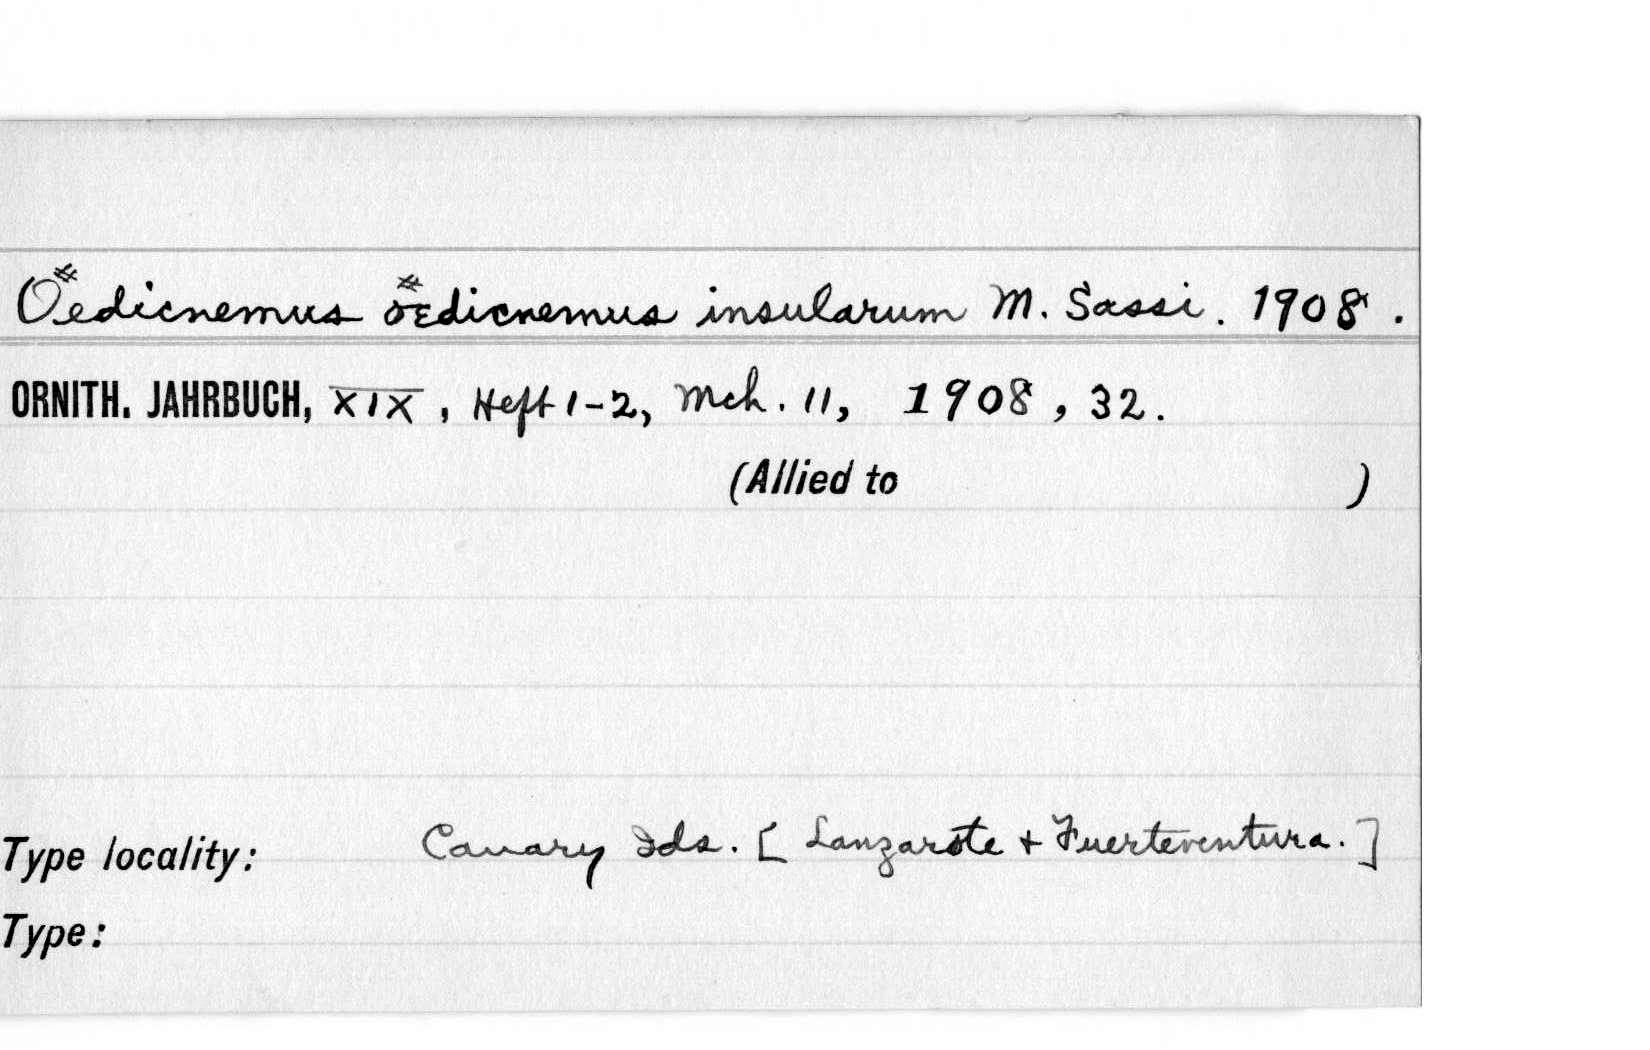 Oedicnemus oedicnemus insularum M. Sassi. 1908.
ORNITH. JAHRBUCH, XIX, Heft 1-2, Mch. 11, 1908, 32.
(Allied to )
Type locality: Canary Ids. [Lanzarote + Fuerteventura.]
Type: